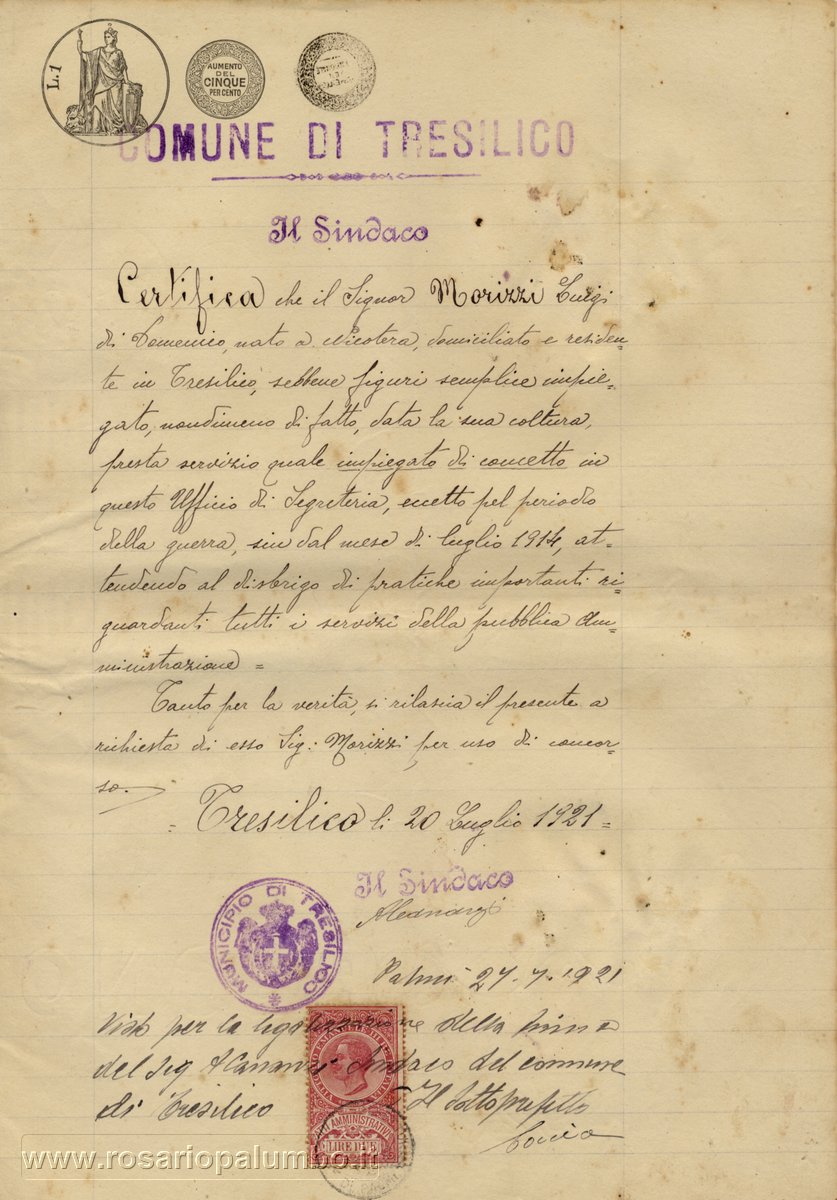 L. 1
AUMENTO
DEL
CINQUE
PER CENTO
COMUNE DI TRESILICO
Il Sindaco
Certifica che il Signor Morizzi Luigi
di Domenico, nato a Nicotera, domiciliato e residen=
te in Tresilico, sebbene figuri semplice impie=
gato, nondimeno di fatto, data la sua coltura,
presta servizio quale impiegato di concetto in
questo Ufficio di Segreteria, eccetto pel periodo
della guerra, sin dal mese di luglio 1914, at=
tendendo al disbrigo di pratiche importanti ri=
guardanti tutti i servizi della pubblica Am=
ministrazione =
Tanto per la verità, si rilascia il presente a
richiesta di esso Sig. Morizzi per uso di concor=
so.
= Tresilico li 20 Luglio 1921 =
Il Sindaco
MUNICIPIO DI TRESILICO
Palmi 27.7.1921
Visto per la legalizzazione della firma
del Sig Sindaco del comune
di Tresilico Il Sottoprefetto
ATTI AMMINISTRATIVI
LIRE DUE
www.rosariopalumbo.it